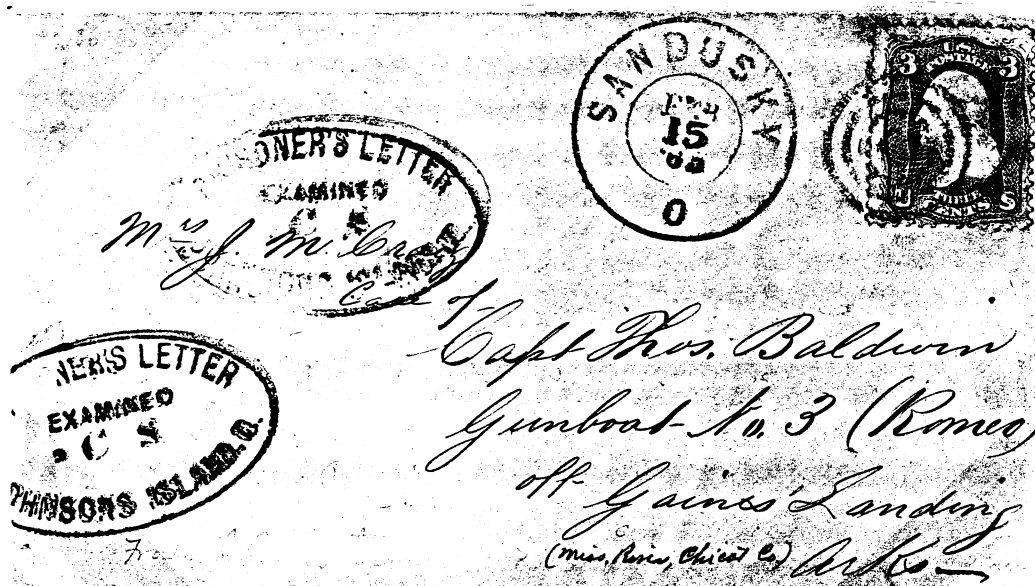 SANDUSKY
15
O
3 3
U S
ONER'S LETTER
EXAMINED
Mrs J. M.
Care of
Capt Thos. Baldwin
Gunboat No. 3 (Romeo)
off Gaines' Landing
(Miss, River, Chicot Co) Arks
NER'S LETTER
EXAMINED
HNSONS ISLAND. O.